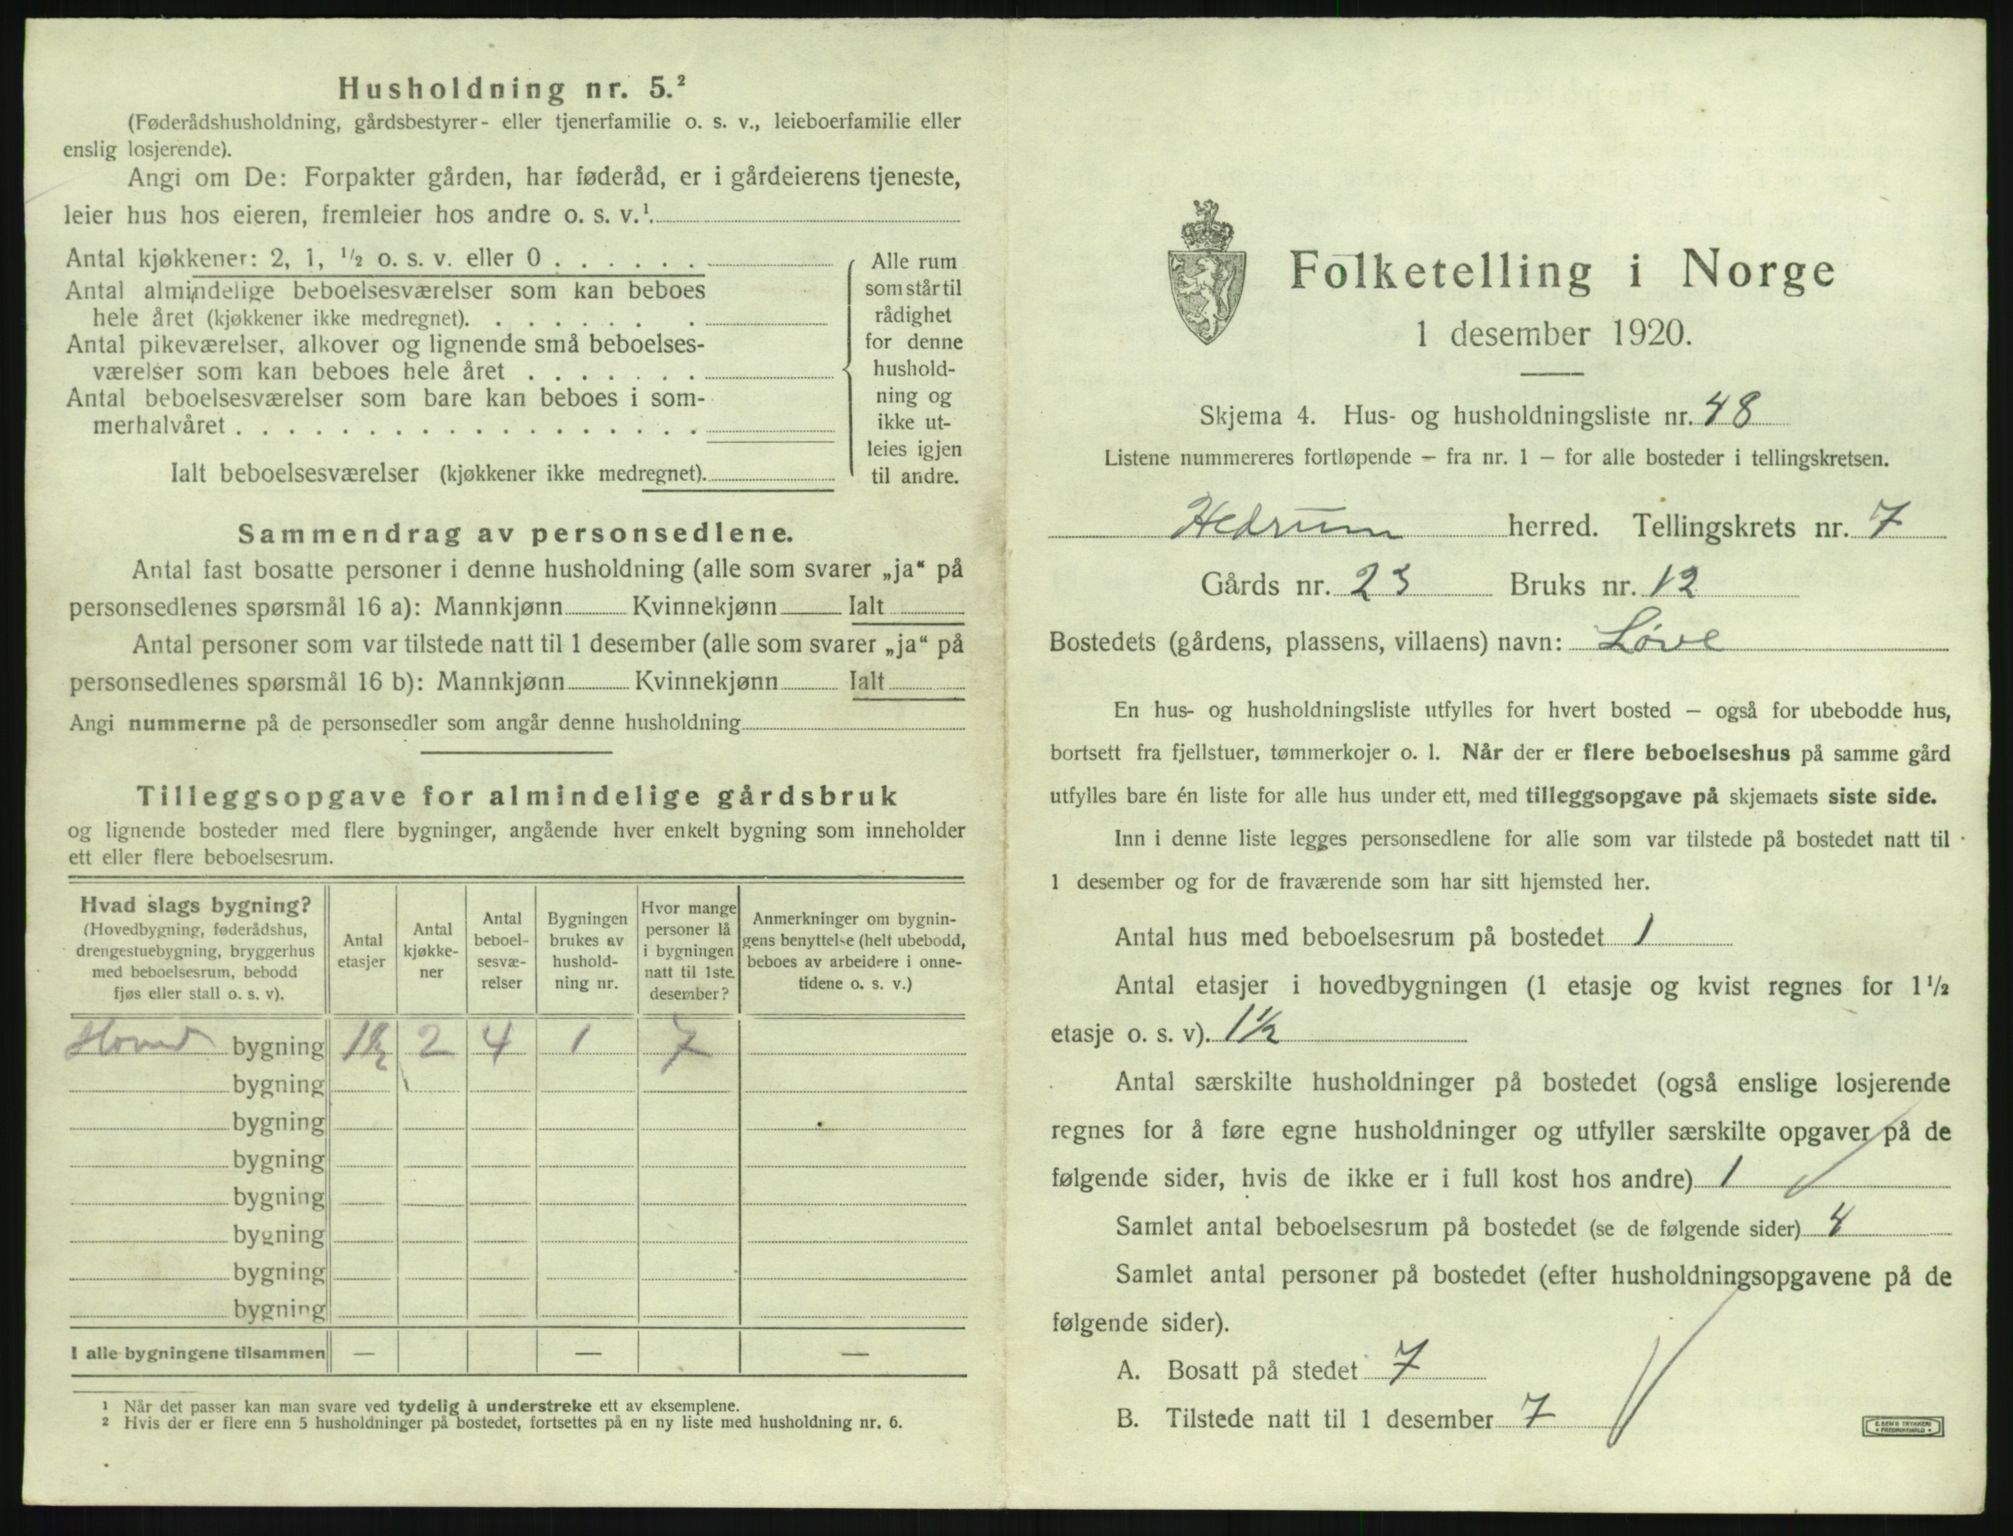 Husholdning nr. 5.²
(Føderådshusholdning, gårdsbestyrer- eller tjenerfamilie o. s. v., leieboerfamilie eller
enslig losjerende).
Angi om De: Forpakter gården, har føderåd, er i gårdeierens tjeneste,
leier hus hos eieren, fremleier hos andre o. s. v.¹
Antal kjøkkener: 2, 1, ½ o. s. v. eller 0 . . . . . .
Antal almindelige beboelsesværelser som kan beboes
hele året (kjøkkener ikke medregnet). . . . . . . . .
Antal pikeværelser, alkover og lignende små beboelses-
værelser som kan beboes hele året . . . . . . .
Antal beboelsesværelser som bare kan beboes i som-
merhalvåret . . . . . . . . . . . . . . . . . .
Ialt beboelsesværelser (kjøkkener ikke medregnet).
Alle rum
som står til
rådighet
for denne
hushold-
ning og
ikke ut-
leies igjen
til andre.
Sammendrag av personsedlene.
Antal fast bosatte personer i denne husholdning (alle som svarer „ja“ på
personsedlenes spørsmål 16 a): Mannkjønn Kvinnekjønn Ialt
Antal personer som var tilstede natt til 1 desember (alle som svarer „ja“ på
personsedlenes spørsmål 16 b): Mannkjønn Kvinnekjønn Ialt
Angi nummerne på de personsedler som angår denne husholdning
Tilleggsopgave for almindelige gårdsbruk
og lignende bosteder med flere bygninger, angående hver enkelt bygning som inneholder
ett eller flere beboelsesrum.
Hvad slags bygning?
(Hovedbygning, føderådshus,
drengestuebygning, bryggerhus
med beboelsesrum, bebodd
fjøs eller stall o. s. v).
Antal
etasjer
Antal
kjøkke-
ner
Antal
beboel-
sesvæ-
relser
Bygningen
brukes av
hushold-
ning nr.
Hvor mange
personer lå
i bygningen
natt til 1ste
desember?
Anmerkninger om bygnin-
gens benyttelse (helt ubebodd,
beboes av arbeidere i onne-
tidene o. s. v.)
Hoved bygning 1½ 2 4 1 7
bygning
bygning
bygning
bygning
bygning
bygning
bygning
I alle bygningene tilsammen — — —
¹ Når det passer kan man svare ved tydelig å understreke ett av eksemplene.
² Hvis der er flere enn 5 husholdninger på bostedet, fortsettes på en ny liste med husholdning nr. 6.
Folketelling i Norge
1 desember 1920.
Skjema 4. Hus- og husholdningsliste nr. 48
Listene nummereres fortløpende – fra nr. 1 – for alle bosteder i tellingskretsen.
Hedrum herred. Tellingskrets nr. 7
Gårds nr. 23 Bruks nr. 12
Bostedets (gårdens, plassens, villaens) navn: Løve
En hus- og husholdningsliste utfylles for hvert bosted – også for ubebodde hus,
bortsett fra fjellstuer, tømmerkojer o. l. Når der er flere beboelseshus på samme gård
utfylles bare én liste for alle hus under ett, med tilleggsopgave på skjemaets siste side.
Inn i denne liste legges personsedlene for alle som var tilstede på bostedet natt til
1 desember og for de fraværende som har sitt hjemsted her.
Antal hus med beboelsesrum på bostedet 1
Antal etasjer i hovedbygningen (1 etasje og kvist regnes for 1½
etasje o. s. v). 1½
Antal særskilte husholdninger på bostedet (også enslige losjerende
regnes for å føre egne husholdninger og utfyller særskilte opgaver på de
følgende sider, hvis de ikke er i full kost hos andre) 1
Samlet antal beboelsesrum på bostedet (se de følgende sider) 4
Samlet antal personer på bostedet (efter husholdningsopgavene på de
følgende sider).
A. Bosatt på stedet 7
B. Tilstede natt til 1 desember 7